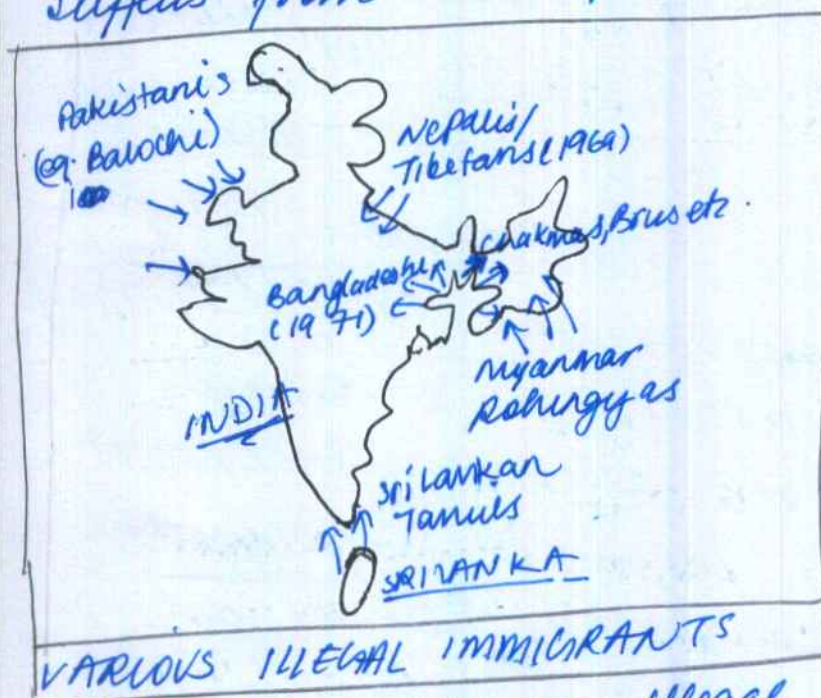 suffers from
Pakistanis
(eg. Balochi)
Nepalis/
Tibetans (1969)
Chakmas, Brus etc.
Bangladeshi
(1971)
Myanmar
Rohingyas
INDIA
Sri Lankan
Tamils
SRI LANKA
VARIOUS ILLEGAL IMMIGRANTS
illegal